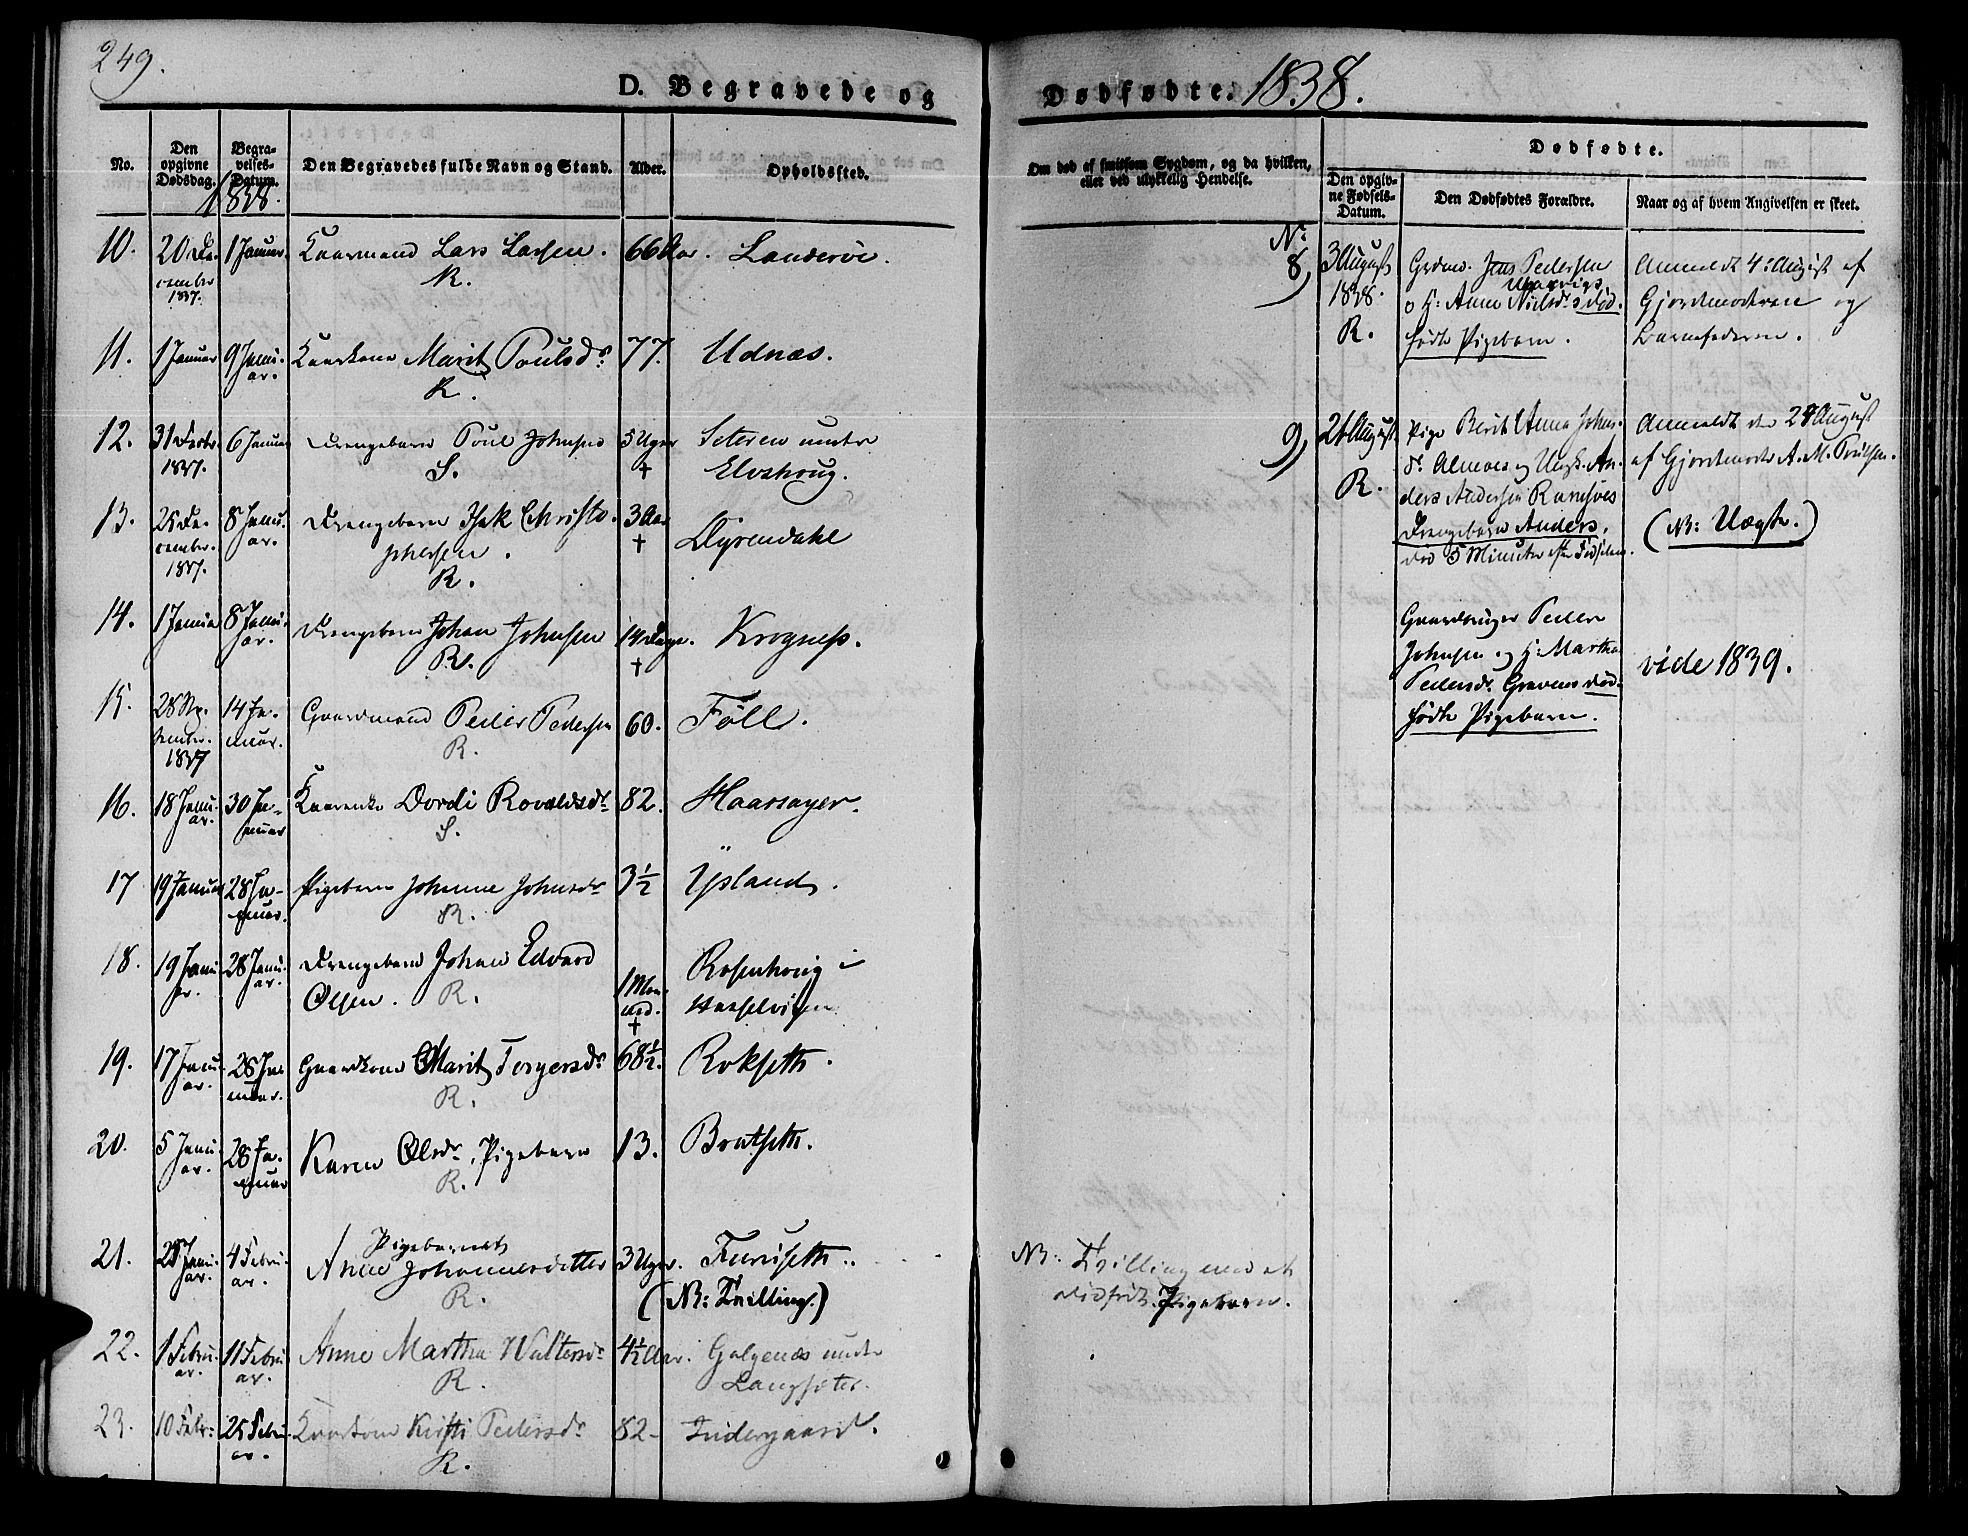 249.
D. Begravede og Dødfødte. 1838.
No.
Den opgivne Dødsdag.
Begravelses-Datum.
Den Begravedes fulde Navn og Stand.
Alder.
Opholdssted.
Om død af smitsom Sygdom, og da hvilken,
eller ved ulykkelig Hendelse.
Dødfødte.
Den opgivne Fødsels-Datum.
Den Dødfødtes Forældre.
Naar og af hvem Angivelsen er skeet.
1838.
10. 20 December 1837. 1 Januar Kaarmand Lars Larsen. R. 66 Aar.
11. 1 Januar 9 Januar. Kaarkone Marit Poulsdr. R. 77. Udnæs.
12. 31 Decbr 1837. 6 Januar Drengebarn Poul Johnsen S. 5 Uger † Seteren under
13. 25 December. 1837. 8 Januar. Drengebarn Isak Christophersen. R. 3 Aar † Dyrendahl
14. 1 Januar 8 Januar. Drengebarn Johan Johnsen R. 14 Dage. † Krogness.
15. 1837 14 Januar. Gaardmand Peder Pedersen R. 60. Föll.
16. 18 Januar. 30 Januar Dordi S. 82.
17 19 Januar 28 Januar. Pigebarn Johanne Johnsdr R. 3½ Ysland.
18. 19 Januar. 28 Januar. Drengebarn Johan Edvard
Olsen. R. 1 Maaned. † Rosenhoug i
19. 17 Januar. 28 Januar. Gaardkone Marit Torgersdr R. 68½. Rokseth.
20. 5 Januar. 28 Januar Karen Olsdr, Pigebarn R. 13. Bratseth.
21. Januar. 4 Februar. Pigebarnet
Anne Johannesdatter R. 3 Uger. Furuseth.
(NB: Tvilling.)
22. 1 Februar. 11 Februar. Anne Martha Waltersdr R. 4½ Aar. Galgenæs under
Langsæter.
23. 10 Febr: 25 Februar. Kaarkone Kirsti Pedersdr R. 82. Indergaard.
No:
8) 3 August 1838. R.
Grdmd. Jens Pedersen
o H: Anne Nielsdrs død-
födte Pigebarn.
Anmeldt 4. August af
Gjordmoderen og
Barnefaderen.
9) August R.
Pige Berit Anna Johns-
dr. og Ungk. An-
ders Andersen
Drengebarn Anders,
død 5 Minuter efter Fødselen.
Anmeldt den August
af Gjordmoder A. M.
(NB: Uægte.)
Gaardbruger Peder
Johnsen og H: Martha
Pedersdr. Gravens død-
födte Pigebarn.
vide 1839.
NB: Tvilling med et
dødfødt Pigebarn.